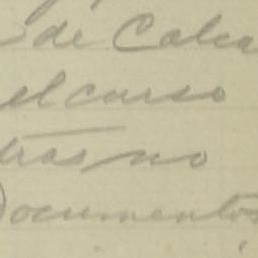 de Calca
el curso
tras no
Documentos